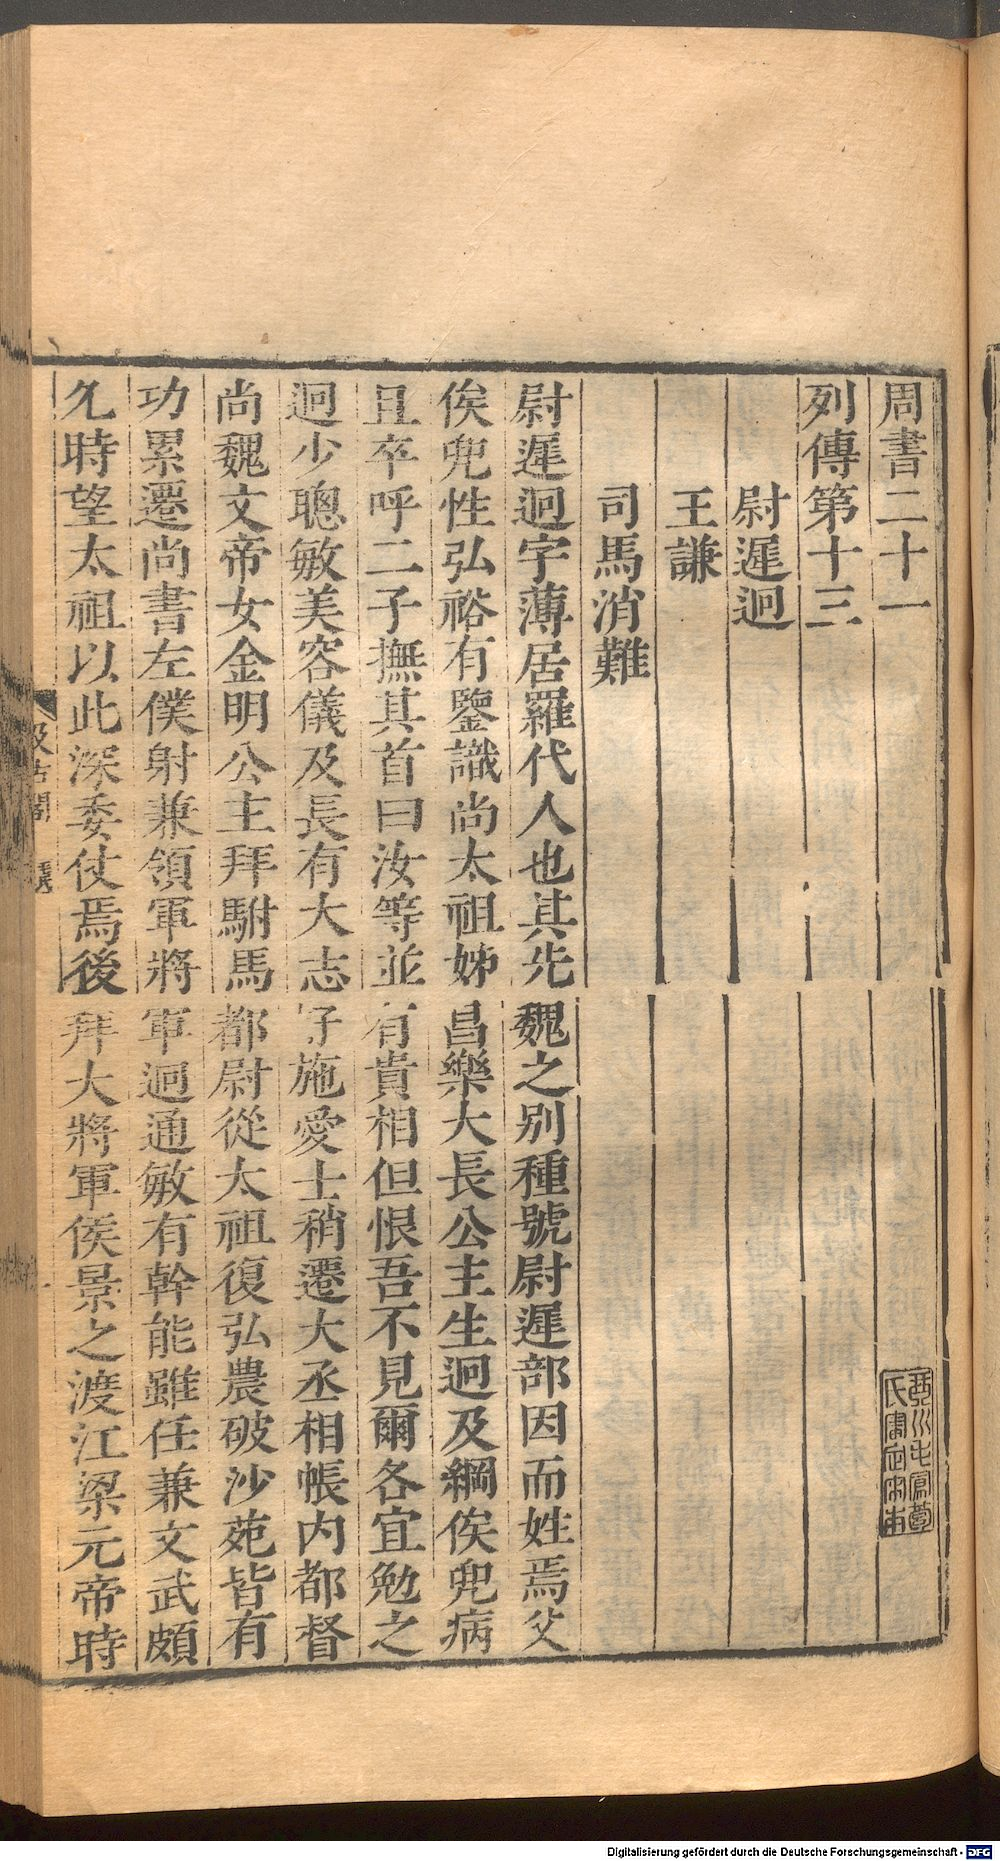 周書二十一
列傳第十三
尉遲迥
王謙
司馬消難
尉遲迥字薄居羅代人也其先魏之別種號尉遲部因而姓焉父
俟兜性弘裕有鑒識尚太祖姊昌樂大長公主生迥及綱俟兜病
且卒呼二子撫其首曰汝等並有貴相但恨吾不見爾各宜勉之
迥少聰敏美容儀及長有大志好施愛士稍遷大丞相帳内都督
尚魏文帝女金明公主拜駙馬都尉從太祖復弘農破沙苑皆有
功累遷尚書左僕射兼領軍將軍迥通敏有幹能雖任兼文武頗
允時望太祖以此深委仗焉後拜大將軍侯景之渡江梁元帝時
汲古閣
Digitalisierung gefördert durch die Deutsche Forschungsgemeinschaft - DFG